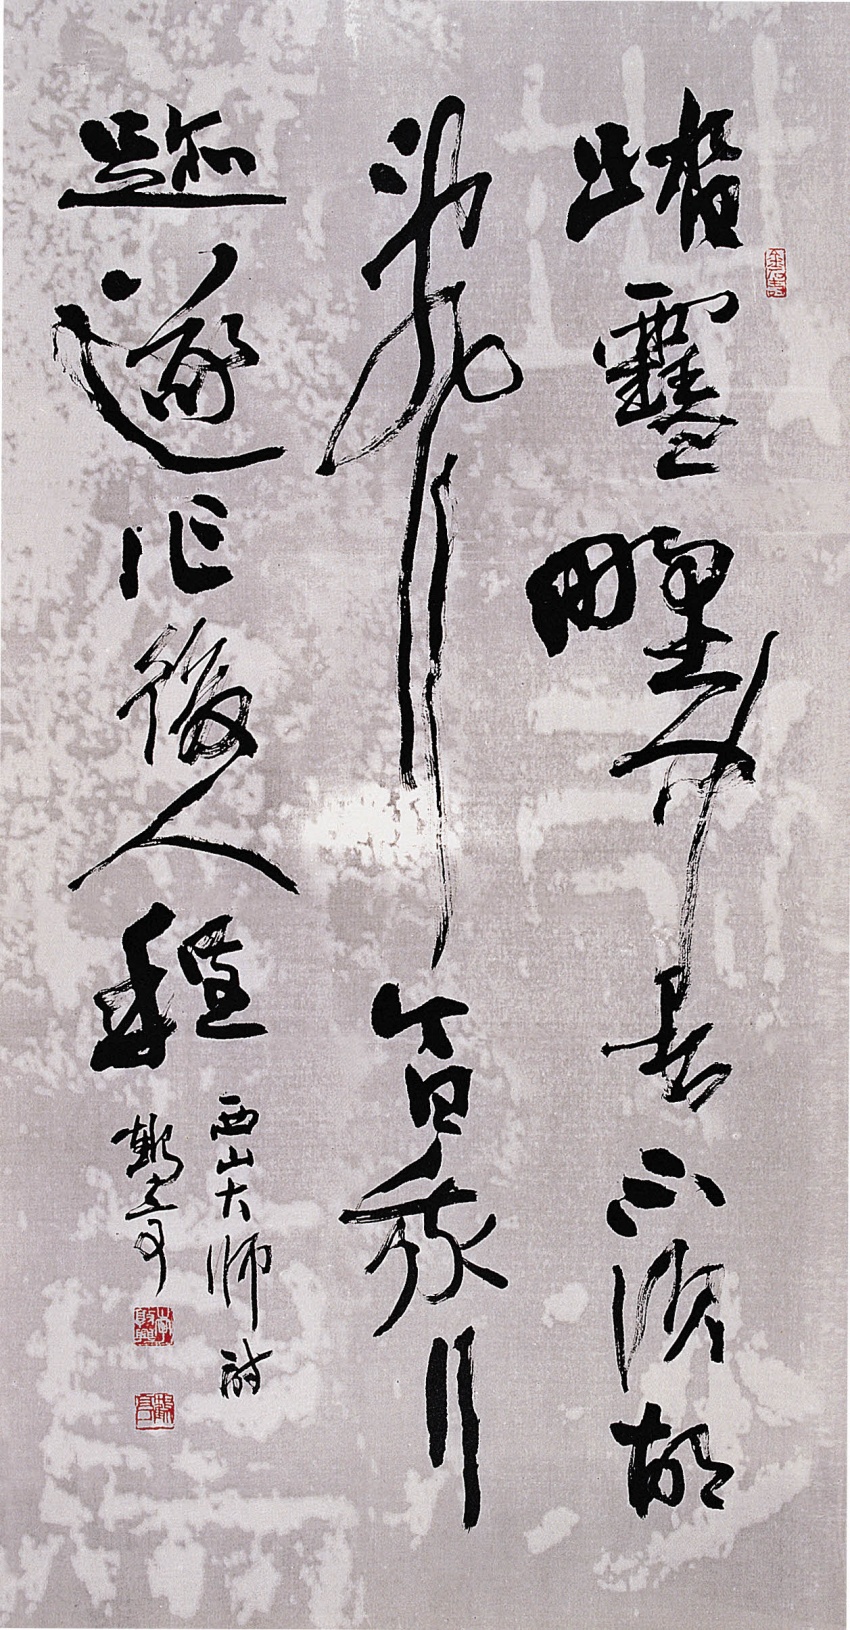 踏雪野中去不須胡
亂行今日我行
跡遂作後人程
西山大師詩